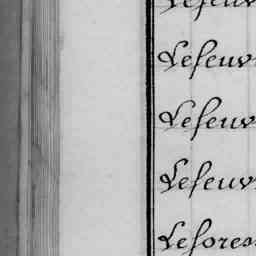 Lefeuv
Lefeuv
Lefeuv
Lefeuv
Leforea